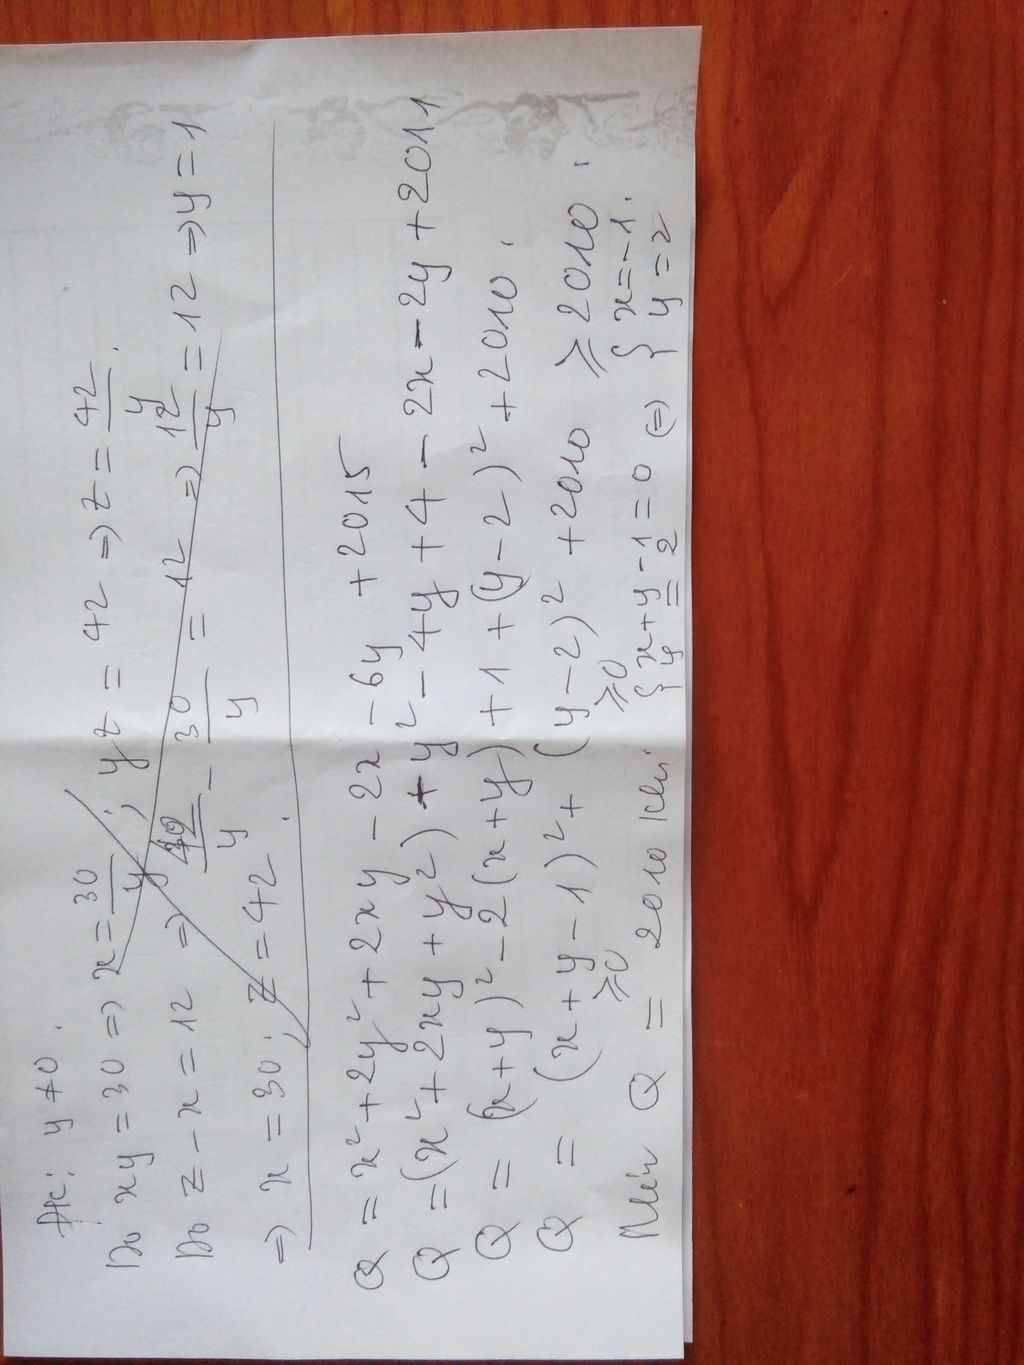 Đk: y ≠ 0.
Do xy = 30 => x = 30/y ; yz = 42 => z = 42/y.
Do z - x = 12 => 42/y - 30/y = 12 => 12/y = 12 => y = 1
=> x = 30; z = 42.
Q = x² + 2y² + 2xy - 2x - 6y + 2015
Q = (x² + 2xy + y²) + y² - 4y + 4 - 2x - 2y + 2011
Q = (x + y)² - 2(x + y) + 1 + (y - 2)² + 2010.
Q = (x + y - 1)² + (y - 2)² + 2010 ≥ 2010.
≥0 ≥0
Min Q = 2010 khi. { x + y - 1 = 0 (=) { x = -1.
y = 2 y = 2